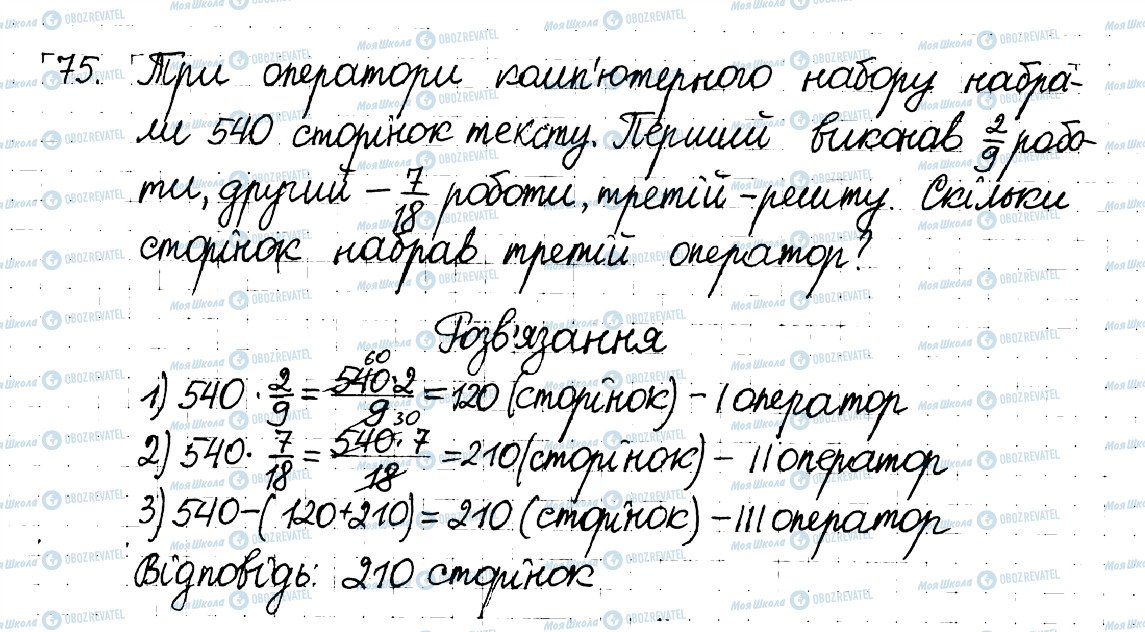 75. Три оператори комп'ютерного набору набра-
ли 540 сторінок тексту. Перший виконав 2/9 робо-
ти, другий – 7/18 роботи, третій – решту. Скільки
сторінок набрав третій оператор?
Розв'язання
1) 540 · 2/9 = 540·2/9 = 120 (сторінок) – I оператор
2) 540 · 7/18 = 540·7/18 = 210 (сторінок) – II оператор
3) 540 – (120+210) = 210 (сторінок) – III оператор
Відповідь: 210 сторінок